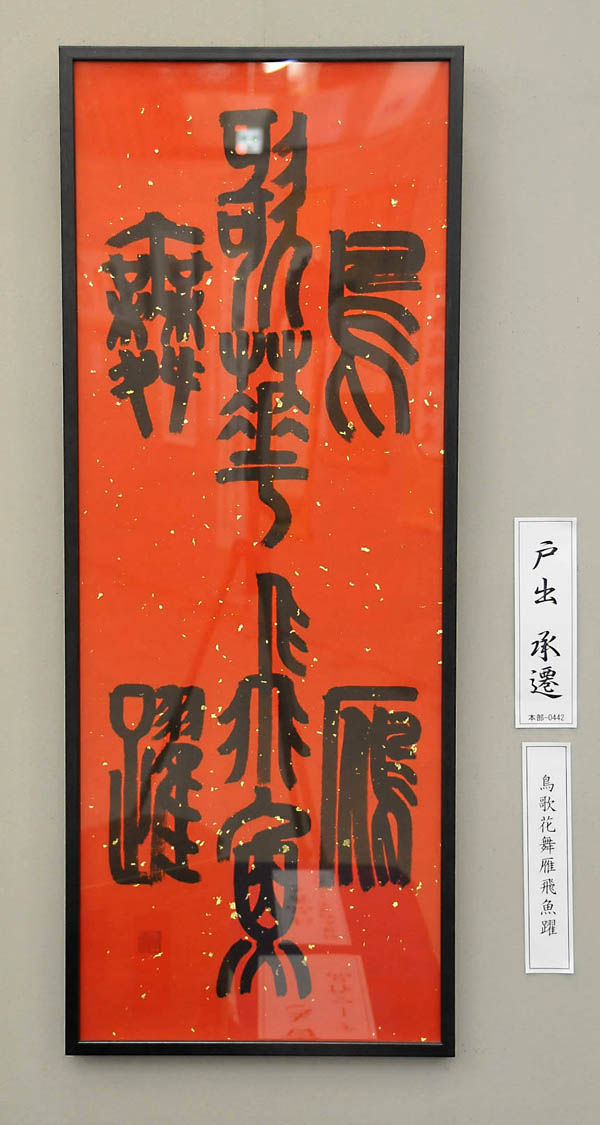 鳥
歌華
舞
雁
飛魚
躍
戸出 承遷
本部-0442
鳥歌花舞雁飛魚躍